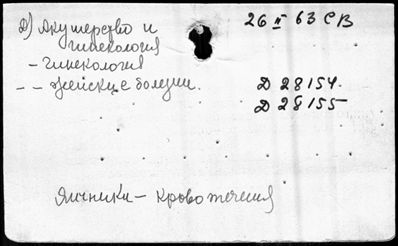 2) Акушерство и
гинекология
26 II 63 СВ
- Гинекология
- - Женские болезни.
Д 28154.
Д 28155
Яичники - кровотечения